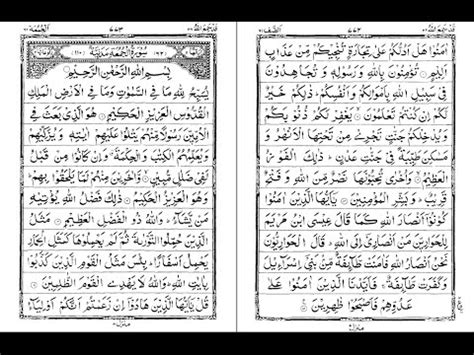 قد سمع الله ٢٨
الصف ٦١
اٰمَنُوْا هَلْ اَدُلُّكُمْ عَلٰى تِجَارَةٍ تُنْجِيْكُمْ مِّنْ عَذَابٍ
اَلِيْمٍ ۝ تُؤْمِنُوْنَ بِاللّٰهِ وَرَسُوْلِهٖ وَتُجَاهِدُوْنَ
فِيْ سَبِيْلِ اللّٰهِ بِاَمْوَالِكُمْ وَاَنْفُسِكُمْ ذٰلِكُمْ خَيْرٌ
لَّكُمْ اِنْ كُنْتُمْ تَعْلَمُوْنَ ۝ يَغْفِرْ لَكُمْ ذُنُوْبَكُمْ
وَيُدْخِلْكُمْ جَنّٰتٍ تَجْرِيْ مِنْ تَحْتِهَا الْاَنْهٰرُ وَ
مَسٰكِنَ طَيِّبَةً فِيْ جَنّٰتِ عَدْنٍ ذٰلِكَ الْفَوْزُ
الْعَظِيْمُ ۝ وَاُخْرٰى تُحِبُّوْنَهَا نَصْرٌ مِّنَ اللّٰهِ وَفَتْحٌ
قَرِيْبٌ وَبَشِّرِ الْمُؤْمِنِيْنَ ۝ يٰٓاَيُّهَا الَّذِيْنَ اٰمَنُوْا
كُوْنُوْٓا اَنْصَارَ اللّٰهِ كَمَا قَالَ عِيْسَى ابْنُ مَرْيَمَ
لِلْحَوَارِيّٖنَ مَنْ اَنْصَارِيْٓ اِلَى اللّٰهِ قَالَ الْحَوَارِيُّوْنَ
نَحْنُ اَنْصَارُ اللّٰهِ فَاٰمَنَتْ طَّآئِفَةٌ مِّنْۢ بَنِيْٓ اِسْرَآءِيْلَ
وَكَفَرَتْ طَّآئِفَةٌ فَاَيَّدْنَا الَّذِيْنَ اٰمَنُوْا عَلٰى
عَدُوِّهِمْ فَاَصْبَحُوْا ظٰهِرِيْنَ ۝
قد سمع الله ٢٨
الجمعة ٦٢
سُوْرَةُ الْجُمُعَةِ مَدَنِيَّةٌ
بِسْمِ اللّٰهِ الرَّحْمٰنِ الرَّحِيْمِ
يُسَبِّحُ لِلّٰهِ مَا فِي السَّمٰوٰتِ وَمَا فِي الْاَرْضِ الْمَلِكِ
الْقُدُّوْسِ الْعَزِيْزِ الْحَكِيْمِ ۝ هُوَ الَّذِيْ بَعَثَ فِي
الْاُمِّيّٖنَ رَسُوْلًا مِّنْهُمْ يَتْلُوْا عَلَيْهِمْ اٰيٰتِهٖ وَيُزَكِّيْهِمْ
وَيُعَلِّمُهُمُ الْكِتٰبَ وَالْحِكْمَةَ وَاِنْ كَانُوْا مِنْ قَبْلُ
لَفِيْ ضَلٰلٍ مُّبِيْنٍ ۝ وَّاٰخَرِيْنَ مِنْهُمْ لَمَّا يَلْحَقُوْا بِهِمْ
وَهُوَ الْعَزِيْزُ الْحَكِيْمُ ۝ ذٰلِكَ فَضْلُ اللّٰهِ يُؤْتِيْهِ
مَنْ يَّشَآءُ وَاللّٰهُ ذُو الْفَضْلِ الْعَظِيْمِ ۝ مَثَلُ
الَّذِيْنَ حُمِّلُوا التَّوْرٰىةَ ثُمَّ لَمْ يَحْمِلُوْهَا كَمَثَلِ الْحِمَارِ
يَحْمِلُ اَسْفَارًا بِئْسَ مَثَلُ الْقَوْمِ الَّذِيْنَ كَذَّبُوْا
بِاٰيٰتِ اللّٰهِ وَاللّٰهُ لَا يَهْدِي الْقَوْمَ الظّٰلِمِيْنَ ۝
قُلْ يٰٓاَيُّهَا الَّذِيْنَ هَادُوْٓا اِنْ زَعَمْتُمْ اَنَّكُمْ اَوْلِيَآءُ